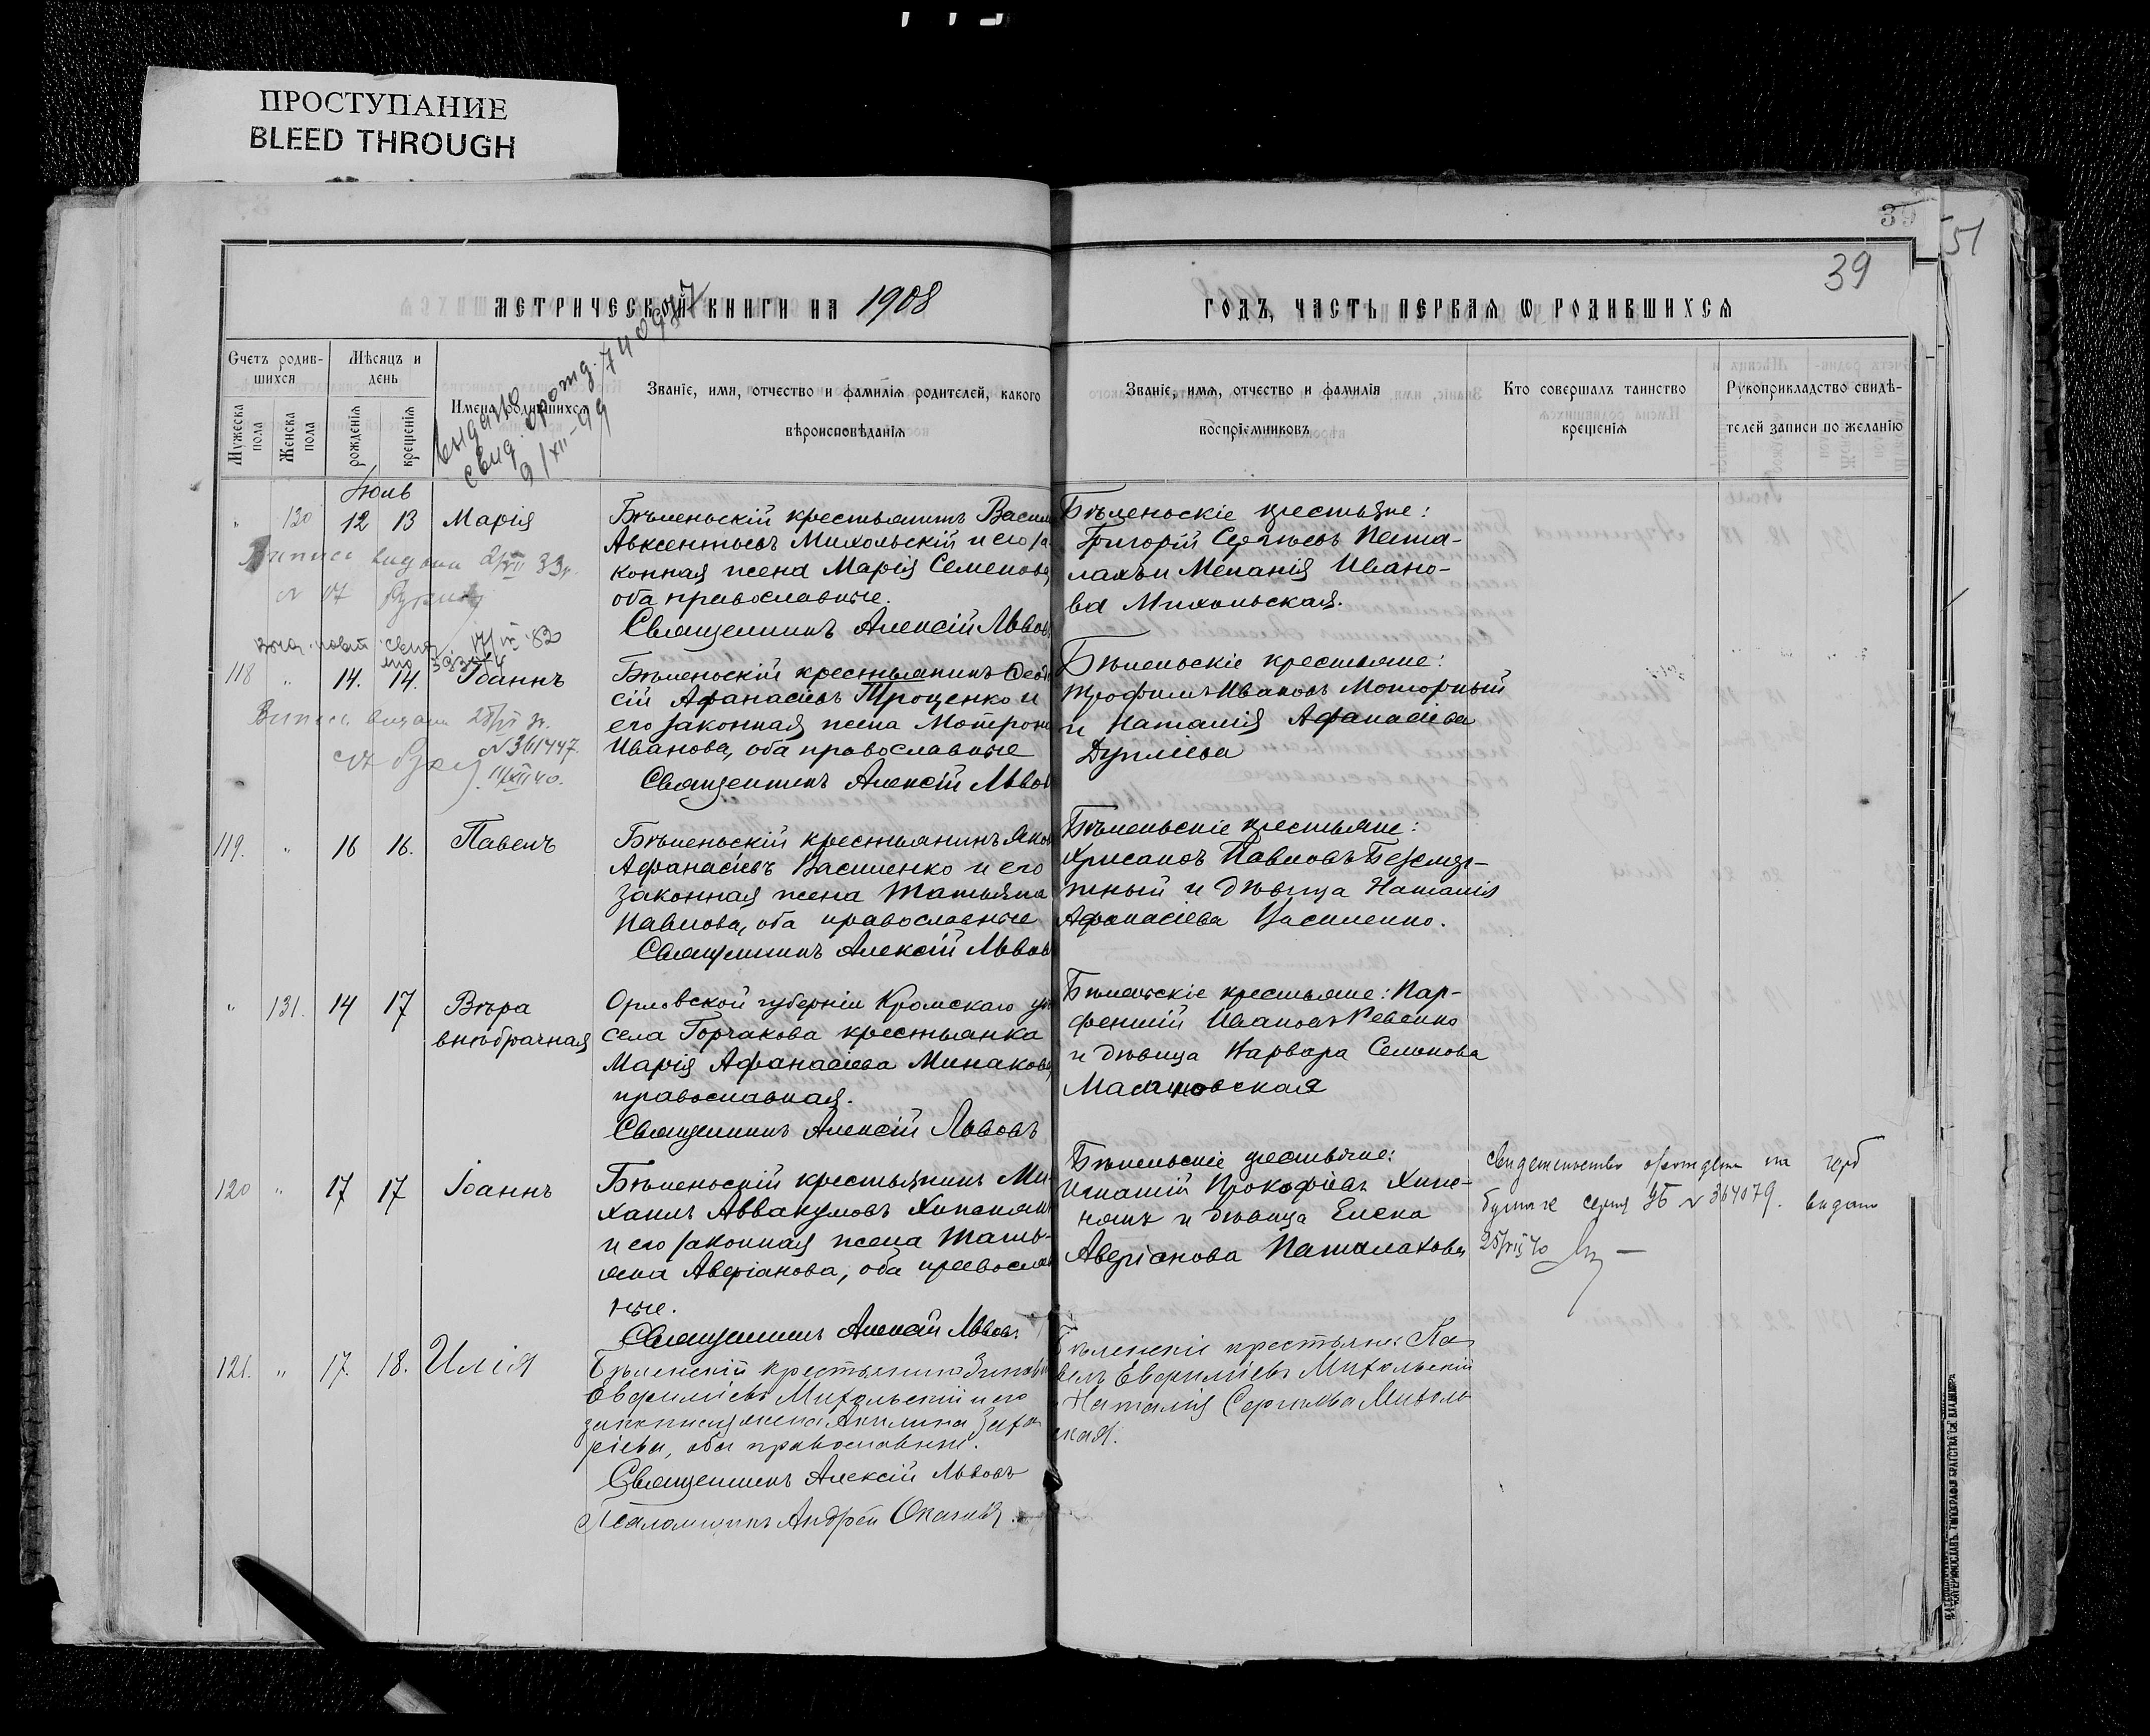 ПРОСТУПАНИЕ
BLEED THROUGH
39
51
39
МЕТРИЧЕСКОЙ КНИГИ НА 1908
ГОДЪ, ЧАСТЬ ПЕРВАЯ Ѡ РОДИВШИХСЯ
Счетъ родив-
шихся
Мужеска пола
Женска пола
Мѣсяцъ и
день
рожденія
крещенія
Имена родившихся
Званіе, имя, отчество и фамилія родителей, какого
вѣроисповѣданія
Званіе, имя, отчество и фамилія
воспріемниковъ
Кто совершалъ таинство
крещенія
Рукоприкладство свидѣ-
телей записи по желанію
выдано
свид. о рожд. 740977
9/XII-99
Іюль
" 130 12 13 Марія
Бѣленьскій крестьянинъ Васил
Авксентьевъ Михольскій и его за
конная жена Марія Семенова,
оба православные.
Священникъ Алексій Львовъ
Бѣленьскіе крестьяне:
Григорій Сергѣевъ Пата-
лахъ и Меланія Ивано-
ва Михольская.
видани 2/VII 33г.
17/IX 82
118 " 14. 14. Іоаннъ
Бѣленьскій крестьянинъ Ѳеодо
сій Афанасіевъ Троценко и
его законная жена Мотрона
Иванова, оба православные
Священникъ Алексій Львовъ
Бѣленьскіе крестьяне:
Трофимъ Ивановъ Моторный
и Наталія Афанасіева
Дуплієва
видани 25/VI
N 361447.
11/XII 40.
119. " 16 16. Павелъ
Бѣленьскій крестьянинъ Яков
Афанасіевъ Василенко и его
законная жена Татьяна
Павлова, оба православные
Священникъ Алексій Львовъ
Бѣленьскіе крестьяне:
Хрисанѳъ Павловъ Безсмер-
тный и дѣвица Наталія
Афанасіева Василенко.
" 131. 14 17 Вѣра
внѣбрачная
Орловской губерніи Кромскаго уѣ
села Горчакова крестьянка
Марія Афанасіева Минакова,
православная.
Священникъ Алексій Львовъ
Бѣленьскіе крестьяне: Пар-
феній Ивановъ Ревенко
и дѣвица Варвара Семенова
120 " 17 17 Іоаннъ
Бѣленьскій крестьянинъ Ми-
хаилъ Аввакумовъ
и его законная жена Тать-
яна Аверіанова, оба православ
ные.
Священникъ Алексій Львовъ
Бѣленьскіе крестьяне:
Игнатій Прокофіевъ
и дѣвица Елена
Аверіанова Паталахова
свидетельство о рождении на герб
бумаге серия УБ N 364079. видано
25/VII 40
121. " 17. 18. Илія
Бѣленскій крестьянинъ Зиновій
Евфиміевъ Михольскій и его
законная жена Акилина Заха
ріева, оба православные.
Священникъ Алексій Львовъ
Псаломщикъ Андрей
Бѣленскіе крестьяне: Па
велъ Евфиміевъ Михольскій
Наталія Сергѣева Михоль
ская.